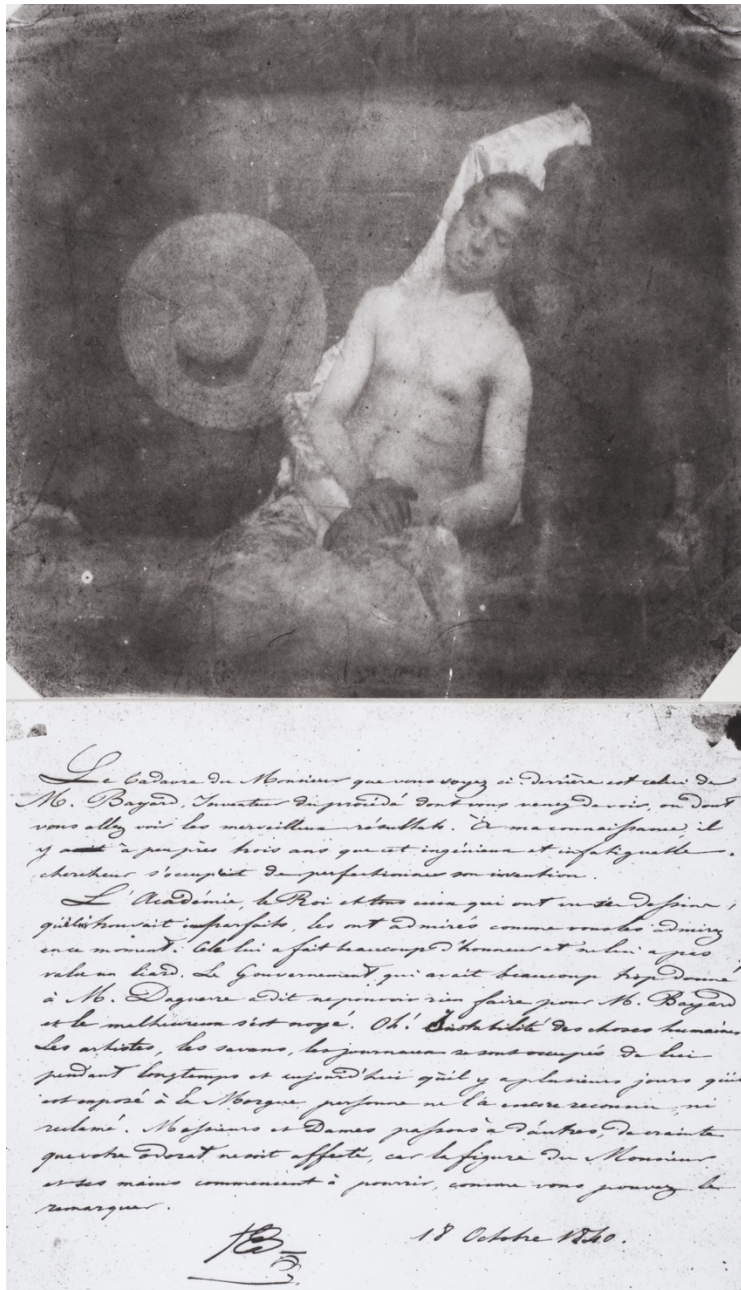 Le Cadavre du Monsieur que vous voyez ci-derrière est celui de
M. Bayard, Inventeur du procédé dont vous venez de voir, ou dont
vous allez voir les merveilleux résultats. À ma connaissance, il
y a à peu près trois ans que cet ingénieux et infatiguable
chercheur s'occupait de perfectionner son invention.
L'Académie, le Roi et tous ceux qui ont vu ses dessins,
que lui trouvait imparfaits, les ont admirés comme vous les admirez
en ce moment. Cela lui a fait beaucoup d'honneur et ne lui a pas
valu un liard. Le Gouvernement, qui avait beaucoup trop donné
à M. Daguerre a dit ne pouvoir rien faire pour M. Bayard
et le malheureux s'est noyé. Oh! Instabilité des choses humaines!
Les artistes, les savans, les journaux se sont occupés de lui
pendant longtemps et aujourd'hui qu'il y a plusieurs jours qu'il
est exposé à la Morgue, personne ne l'a encore reconnu, ni
réclamé. Messieurs et Dames, passons à d'autres, de crainte
que votre odorat ne soit affecté, car la figure du Monsieur
et ses mains commencent à pourrir, comme vous pouvez le
remarquer.
HB 18 Octobre 1840.